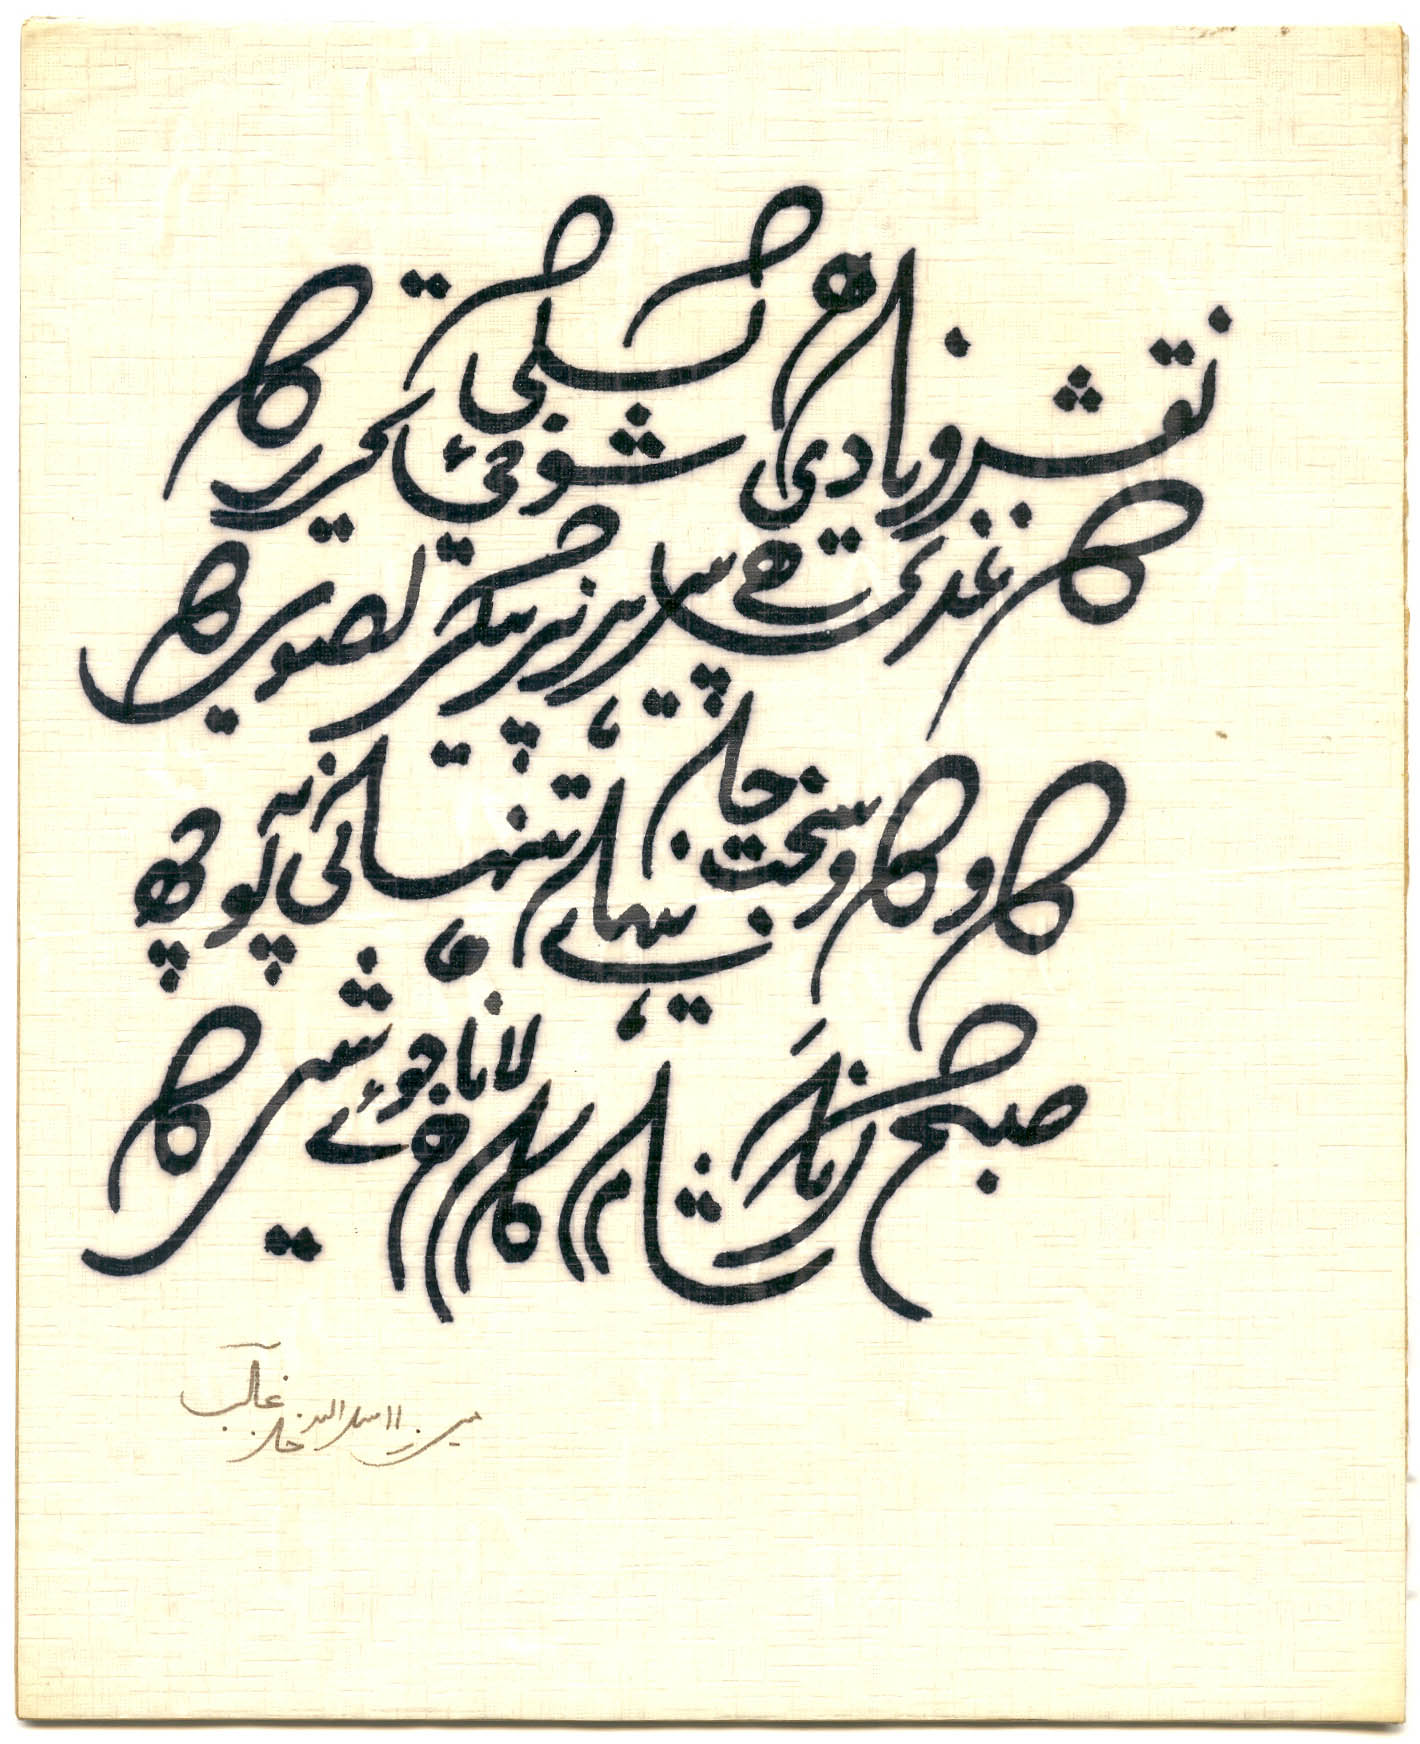 نقش فریادی ہے کس کی شوخئ تحریر کا
کاغذی ہے پیرہن ہر پیکر تصویر کا
کاو کاو سخت جانیہائے تنہائی نہ پوچھ
صبح کرنا شام کا لانا ہے جوئے شیر کا
میرزا اسد اللہ خاں غالب